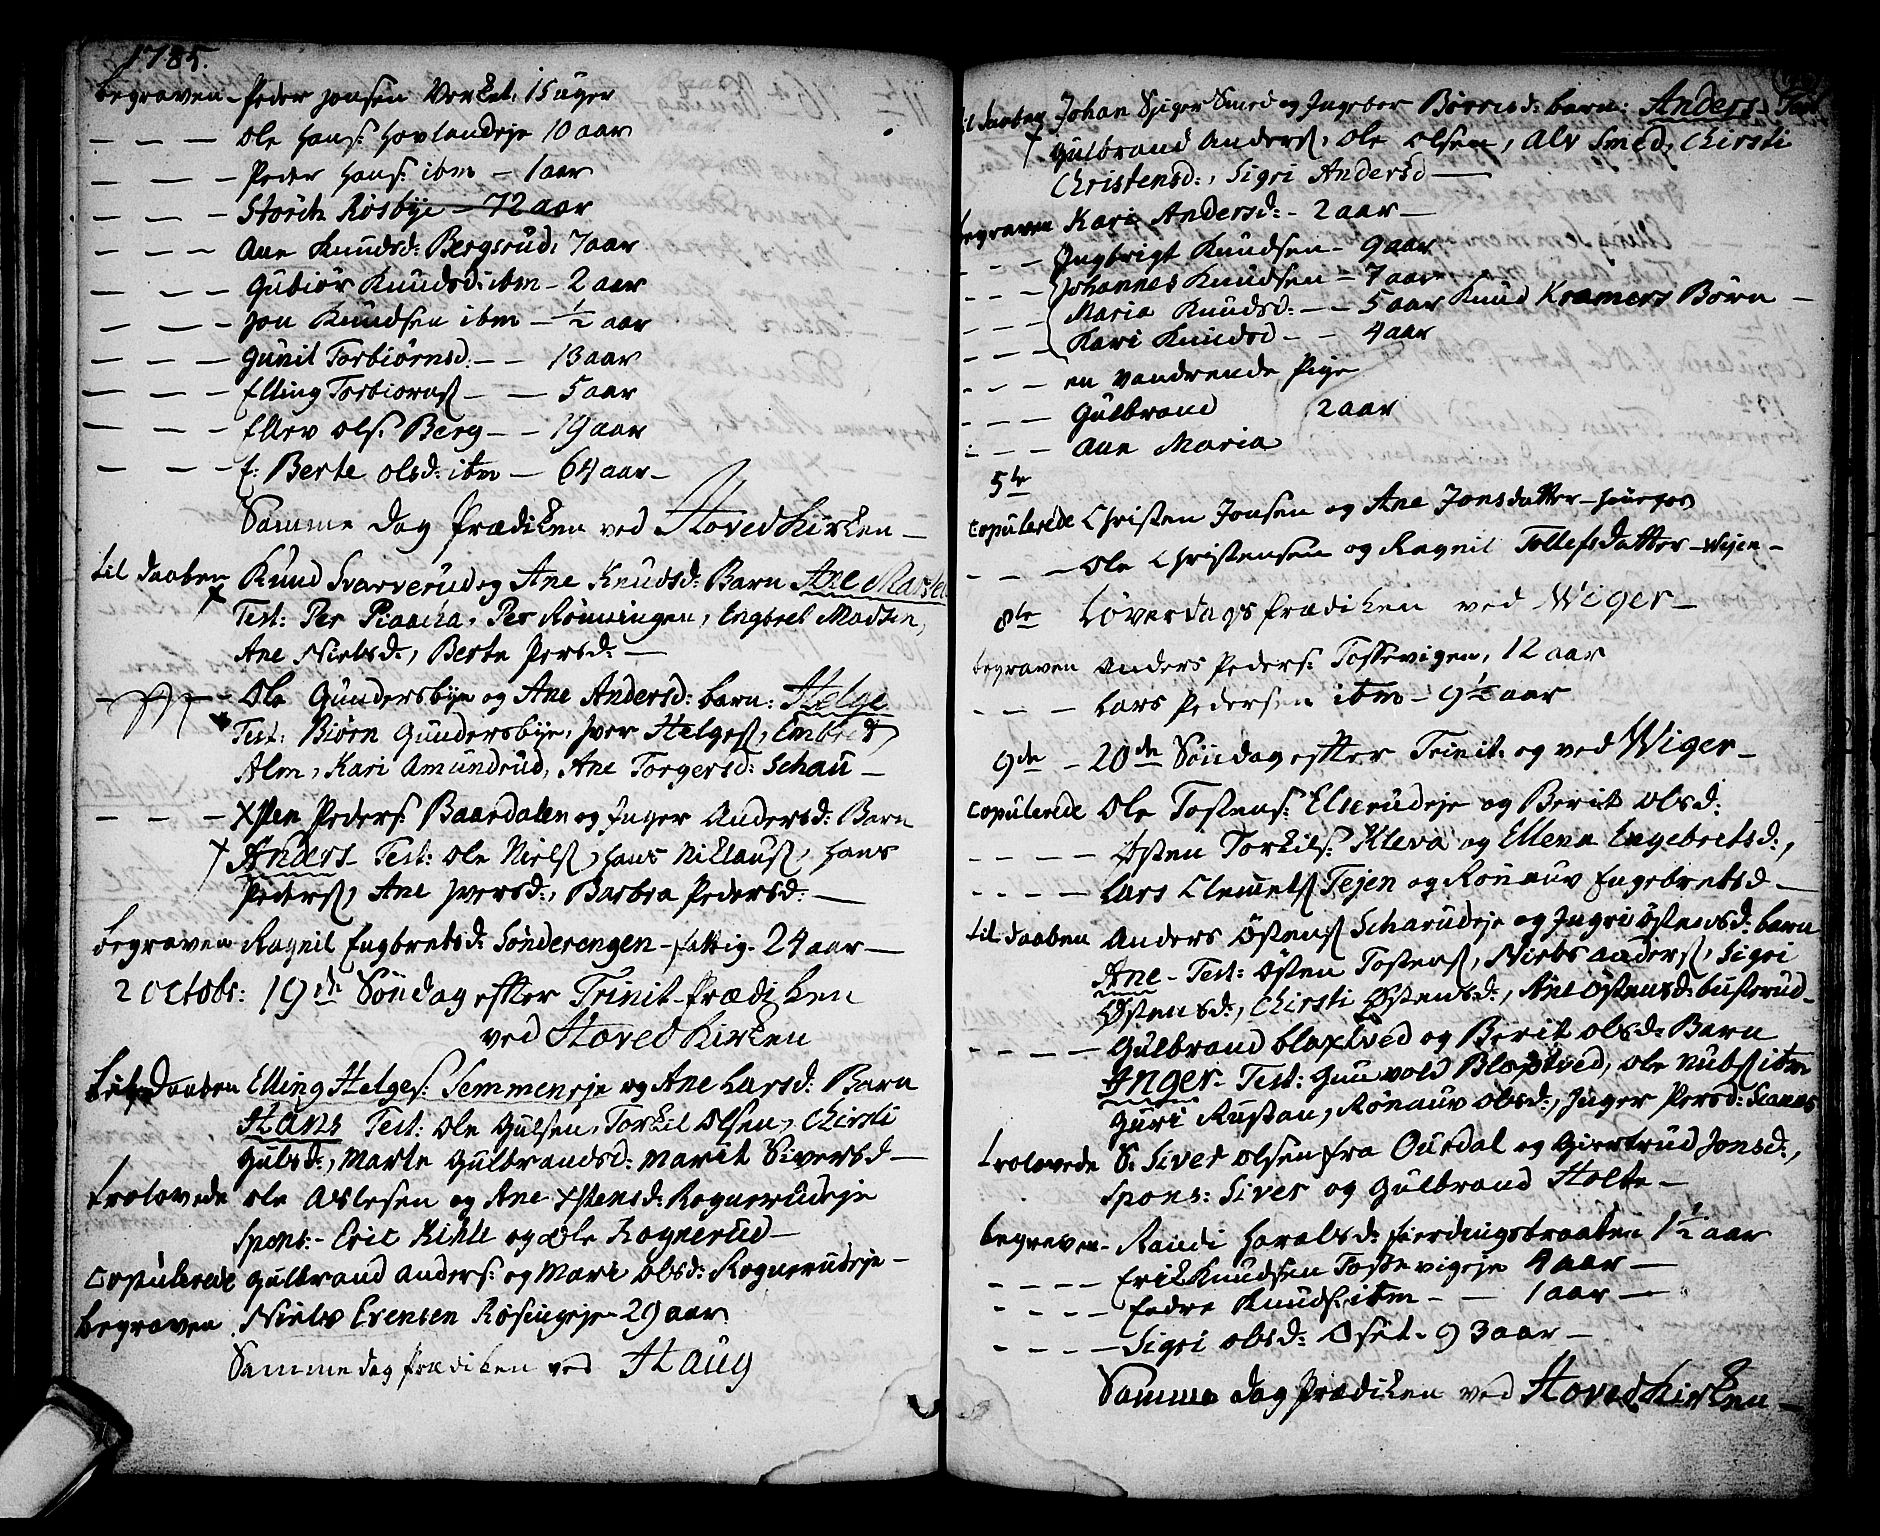 1785.
begraven - Peder Jonsen Verket, 15 uger
— — — Ole Hans: Hovlandeje 10 aar
— — — Peder Hans: ibm — 1 aar
— — — Störch Røsbye — 72 aar
— — — Ane Knudsd: Bergsrud, 7 aar
— — — Gubiör Knudsd: ibm — 2 aar
— — — Jon Knudsen ibm — ½ aar
— — — Gunil Torbiörnsd: — — 13 aar
— — — Elling Torbiörns: — — 5 aar
— — — Ellev Ols: Berg — — 19 aar
— — — f: Berte Olsd: ibm — 64 aar —
Samme Dag Prædiken ved Hoved Kirken —
til daaben Knud Svarverud og Ane Knudsd: Barn Ane Marte
Test: Per Piaacka, Per Rønningen, Engbret Madsen,
Ane Nielsd:, Berte Persd: —
— Ole Gundersbye og Ane Andersd: barn: Helge
Test: Biørn Gundersbye, Iver Helges:, Embret
Alm, Kari Amundrud, Ane Torgersd: Schau —
— — — Xsten Peders: Baardalen og Inger Andersd: Barn
Anders — Test: Ole Niels:, Hans Niklaus:, Hans
Peders:, Ane Iversd:, Barbra Pedersd: —
begraven Ragnil Engbretsd: Sønderengen — fattig — 24 aar —
2 Octobr: 19de Søndag efter Trinit. Prædiken
ved Hoved Kirken
til Daaben Elling Helges: Semmenseje og Ane Larsd: Barn
Hans Test: Ole Gulsen, Torkil Olsen, Chirsti
Gulsd:, Marte Gulbrandsd: Marit Siversd —
trolovede Ole Aslesen og Ane Xstensd: Rognerudeje
Spons: — Eric Kihle og Ole Rognerud —
Copulerede Gulbrand Anders: og Mari Olsd: Rognerudeje —
begraven Niels Evensen Røsingeje 29 aar
Samme dag Prædiken ved Haug
til daaben Johan Spiger Smed og Ingebor Börresd: barn: Anders. Test
Gulbrand Anders:, Ole Olsen, Alv Smed, Chirsti
Christensd:, Sigri Andersd —
begraven Kari Andersd: — 2 aar —
— — — Ingbrigt Knudsen — 9 aar
— — — Johannes Knudsen — 7 aar
— — — Maria Knudsd: — — 5 aar Knud Kramers Börn —
— — — Kari Knudsd — — 4 aar
— — — en vandrende Pige
— — — Gulbrand 2 aar
— — — Ane Maria
5te
copulerede Christen Jonsen og Ane Jonsdatter —
— — — Ole Christensen og Ragnil Tollefsdatter — Wijen —
8te Löverdags Prædiken ved Wiger —
begraven Anders Peders: Tossevigen, 12 aar
— — — Lars Pedersen ibm — 9½ aar
9de — 20de Söndag efter Trinit: og ved Wiger —
copulerede Ole Tostens: Elserudeje og Berit Olsd:
— — — — Østen Torkils: Kleva og Ellena Engebretsd:,
— — — — Lars Clemets: Tejen og Rönauv Engebretsd —
til daaben Anders Østens: Scharudeje og Ingri Østensd: barn
Ane — Test: Østen Tostens:, Niels Anders:, Sigri
Østensd:, Chirsti Østensd:, Ane Østensd: busterud —
— — — — Gulbrand blaxtved og Berit Olsd: Barn
Anger — Test: Gunvold Blaxtved, Ole Nubs: ibm
Guri Rustan, Rönauv Olsd:, Inger Persd:
trolovede S. Siver Olsen fra Ourdal og Giertrud Jonsd:,
Spons: Siver og Gulbrand Holte —
begraven — Randi Haralsd: Fierdingsbraaten 1½ aar
— — — — Erik Knudsen Tossevigeje 4 aar —
— — — — Endre Knuds: ibm — — 1 aar —
— — — — Sigri Olsd: Oset — 93 aar —
Samme Dag Prædiken ved Hoved Kirken —